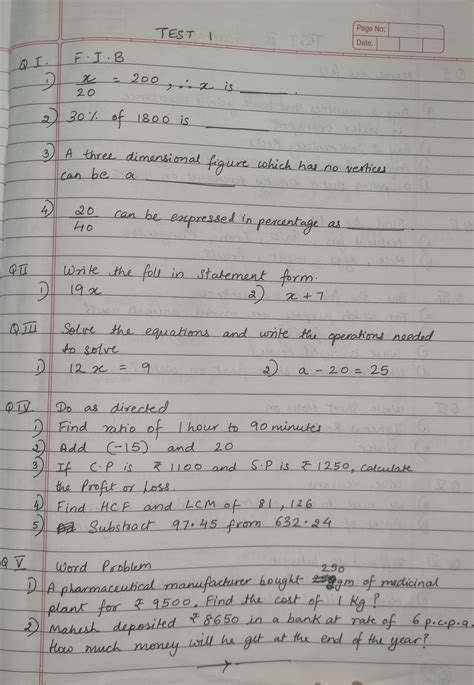 TEST 1
Page No:
Date.
Q I. F.I.B
1) x/20 = 200, ∴ x is ____
2) 30% of 1800 is ____
3) A three dimensional figure which has no vertices
can be a ____
4) 20/40 can be expressed in percentage as ____
Q II Write the foll in statement form.
1) 19x 2) x + 7
Q III Solve the equations and write the operations needed
to solve
1) 12x = 9 2) a - 20 = 25
Q IV Do as directed
1) Find ratio of 1 hour to 90 minutes
2) Add (-15) and 20
3) If C.P is ₹ 1100 and S.P is ₹ 1250, calculate
the Profit or Loss.
4) Find HCF and LCM of 81, 126
5) Substract 97.45 from 632.24
Q V Word Problem
1) A pharmaceutical manufacturer bought 250 gm of medicinal
plant for ₹ 9500, Find the cost of 1 Kg?
2) Mahesh deposited ₹ 8650 in a bank at rate of 6 p.c.p.a.
How much money will he get at the end of the year?